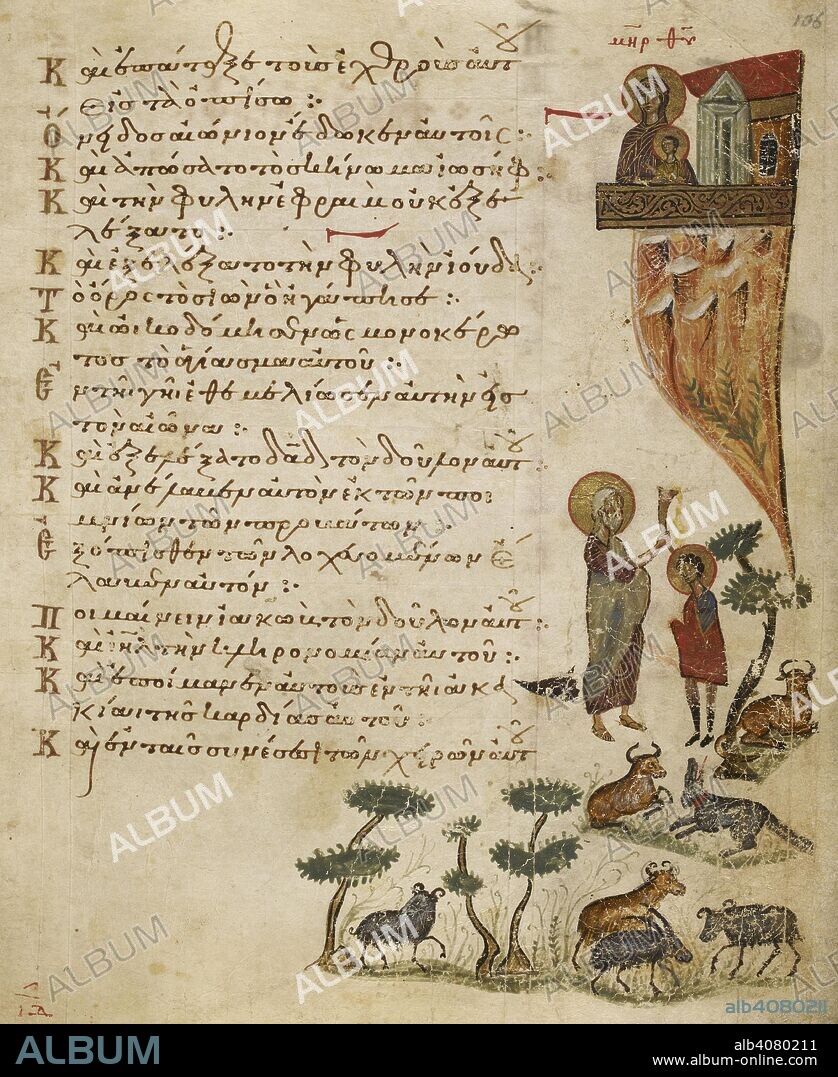 μηρ θυ
Καὶ ἐπάταξε τοὺς ἐχθροὺς αὐτου
εἰς τὰ ὀπίσω :
Ὄνειδος αἰώνιον ἔδωκεν αὐτοῖς :
Καὶ ἀπώσατο τὸ σκήνωμα ἰωσήφ :
Καὶ τὴν φυλὴν ἐφραὶμ οὐκ ἐξε
λέξατο :
Καὶ ἐξελέξατο τὴν φυλὴν ἰούδα :
Τὸ ὄρος τὸ σιὼν ὃ ἠγάπησε :
Καὶ ὠικοδόμησεν ὡς μονοκέρω
τος τὸ ἁγίασμα αὐτοῦ :
Ἐν τῆι γῆι ἐθεμελίωσεν αὐτὴν εἰς
τὸν αἰῶνα :
Καὶ ἐξελέξατο δαδ τὸν δοῦλον αὐτου :
Καὶ ἀνέλαβεν αὐτὸν ἐκ τῶν ποι
μνίων τῶν προβάτων :
Ἐξόπισθεν τῶν λοχευομένων ἔ
λαβεν αὐτόν :
Ποιμαίνειν ἰακὼβ τὸν δοῦλον αὐτου :
Καὶ ιηλ τὴν κληρονομίαν αὐτοῦ :
Καὶ ἐποίμανεν αὐτοὺς ἐν τῆι ἀκα
κίαι τῆς καρδίας αὐτοῦ :
Καὶ ἐν ταῖς συνέσεσι τῶν χειρῶν αὐτου
ALBUM
alb4080211
ALBUM
alb4080211
www.album-online.com